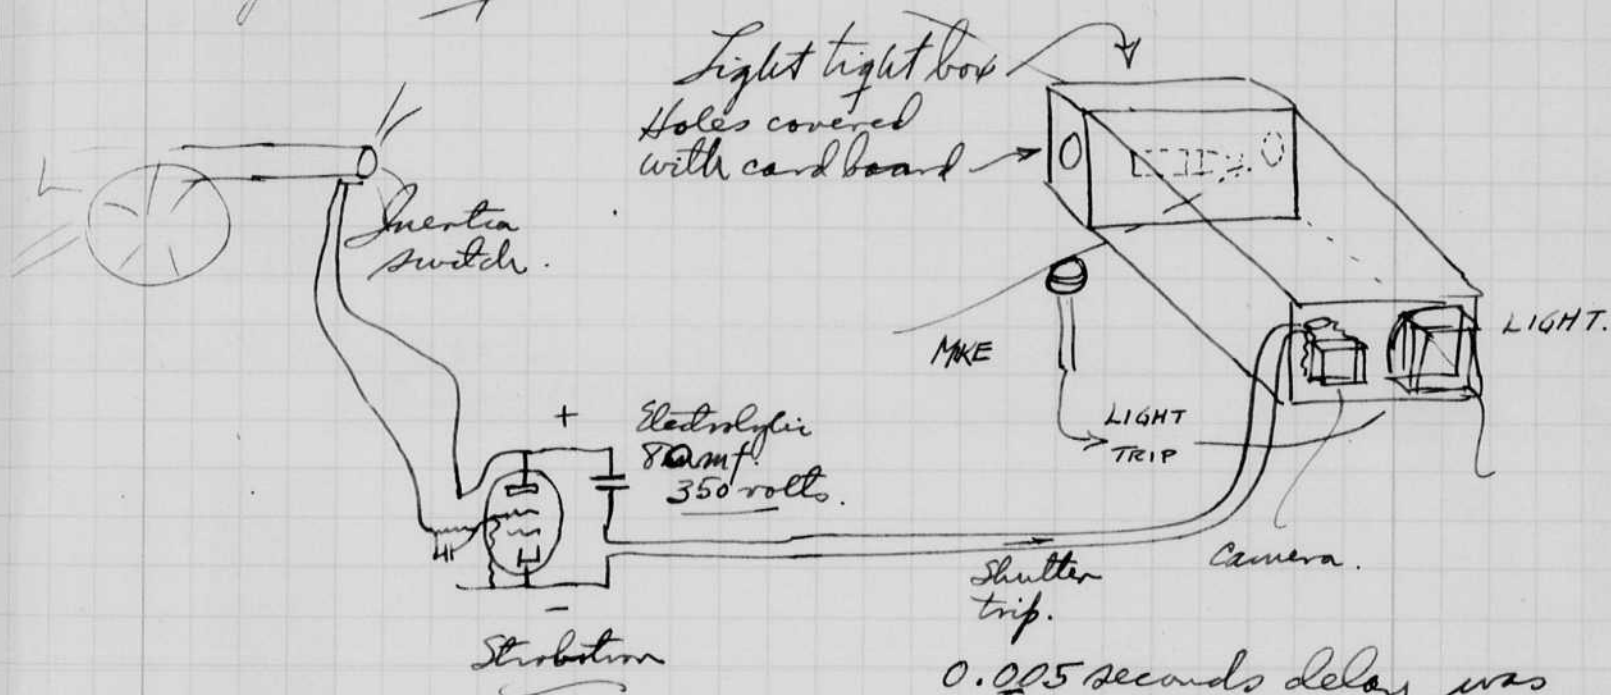 Light tight box
Holes covered
with card board
Inertia
switch.
LIGHT.
MIKE
LIGHT
TRIP
+
Electrolytic
80 mf.
350 volts.
Shutter
trip.
Camera.
-
Strobotron
0.005 seconds delay was